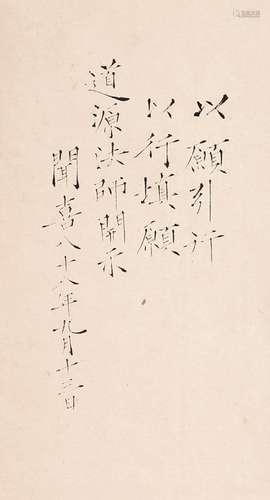 以願引行
以行填願
道源法師開示
聞喜八十八年九月十三日